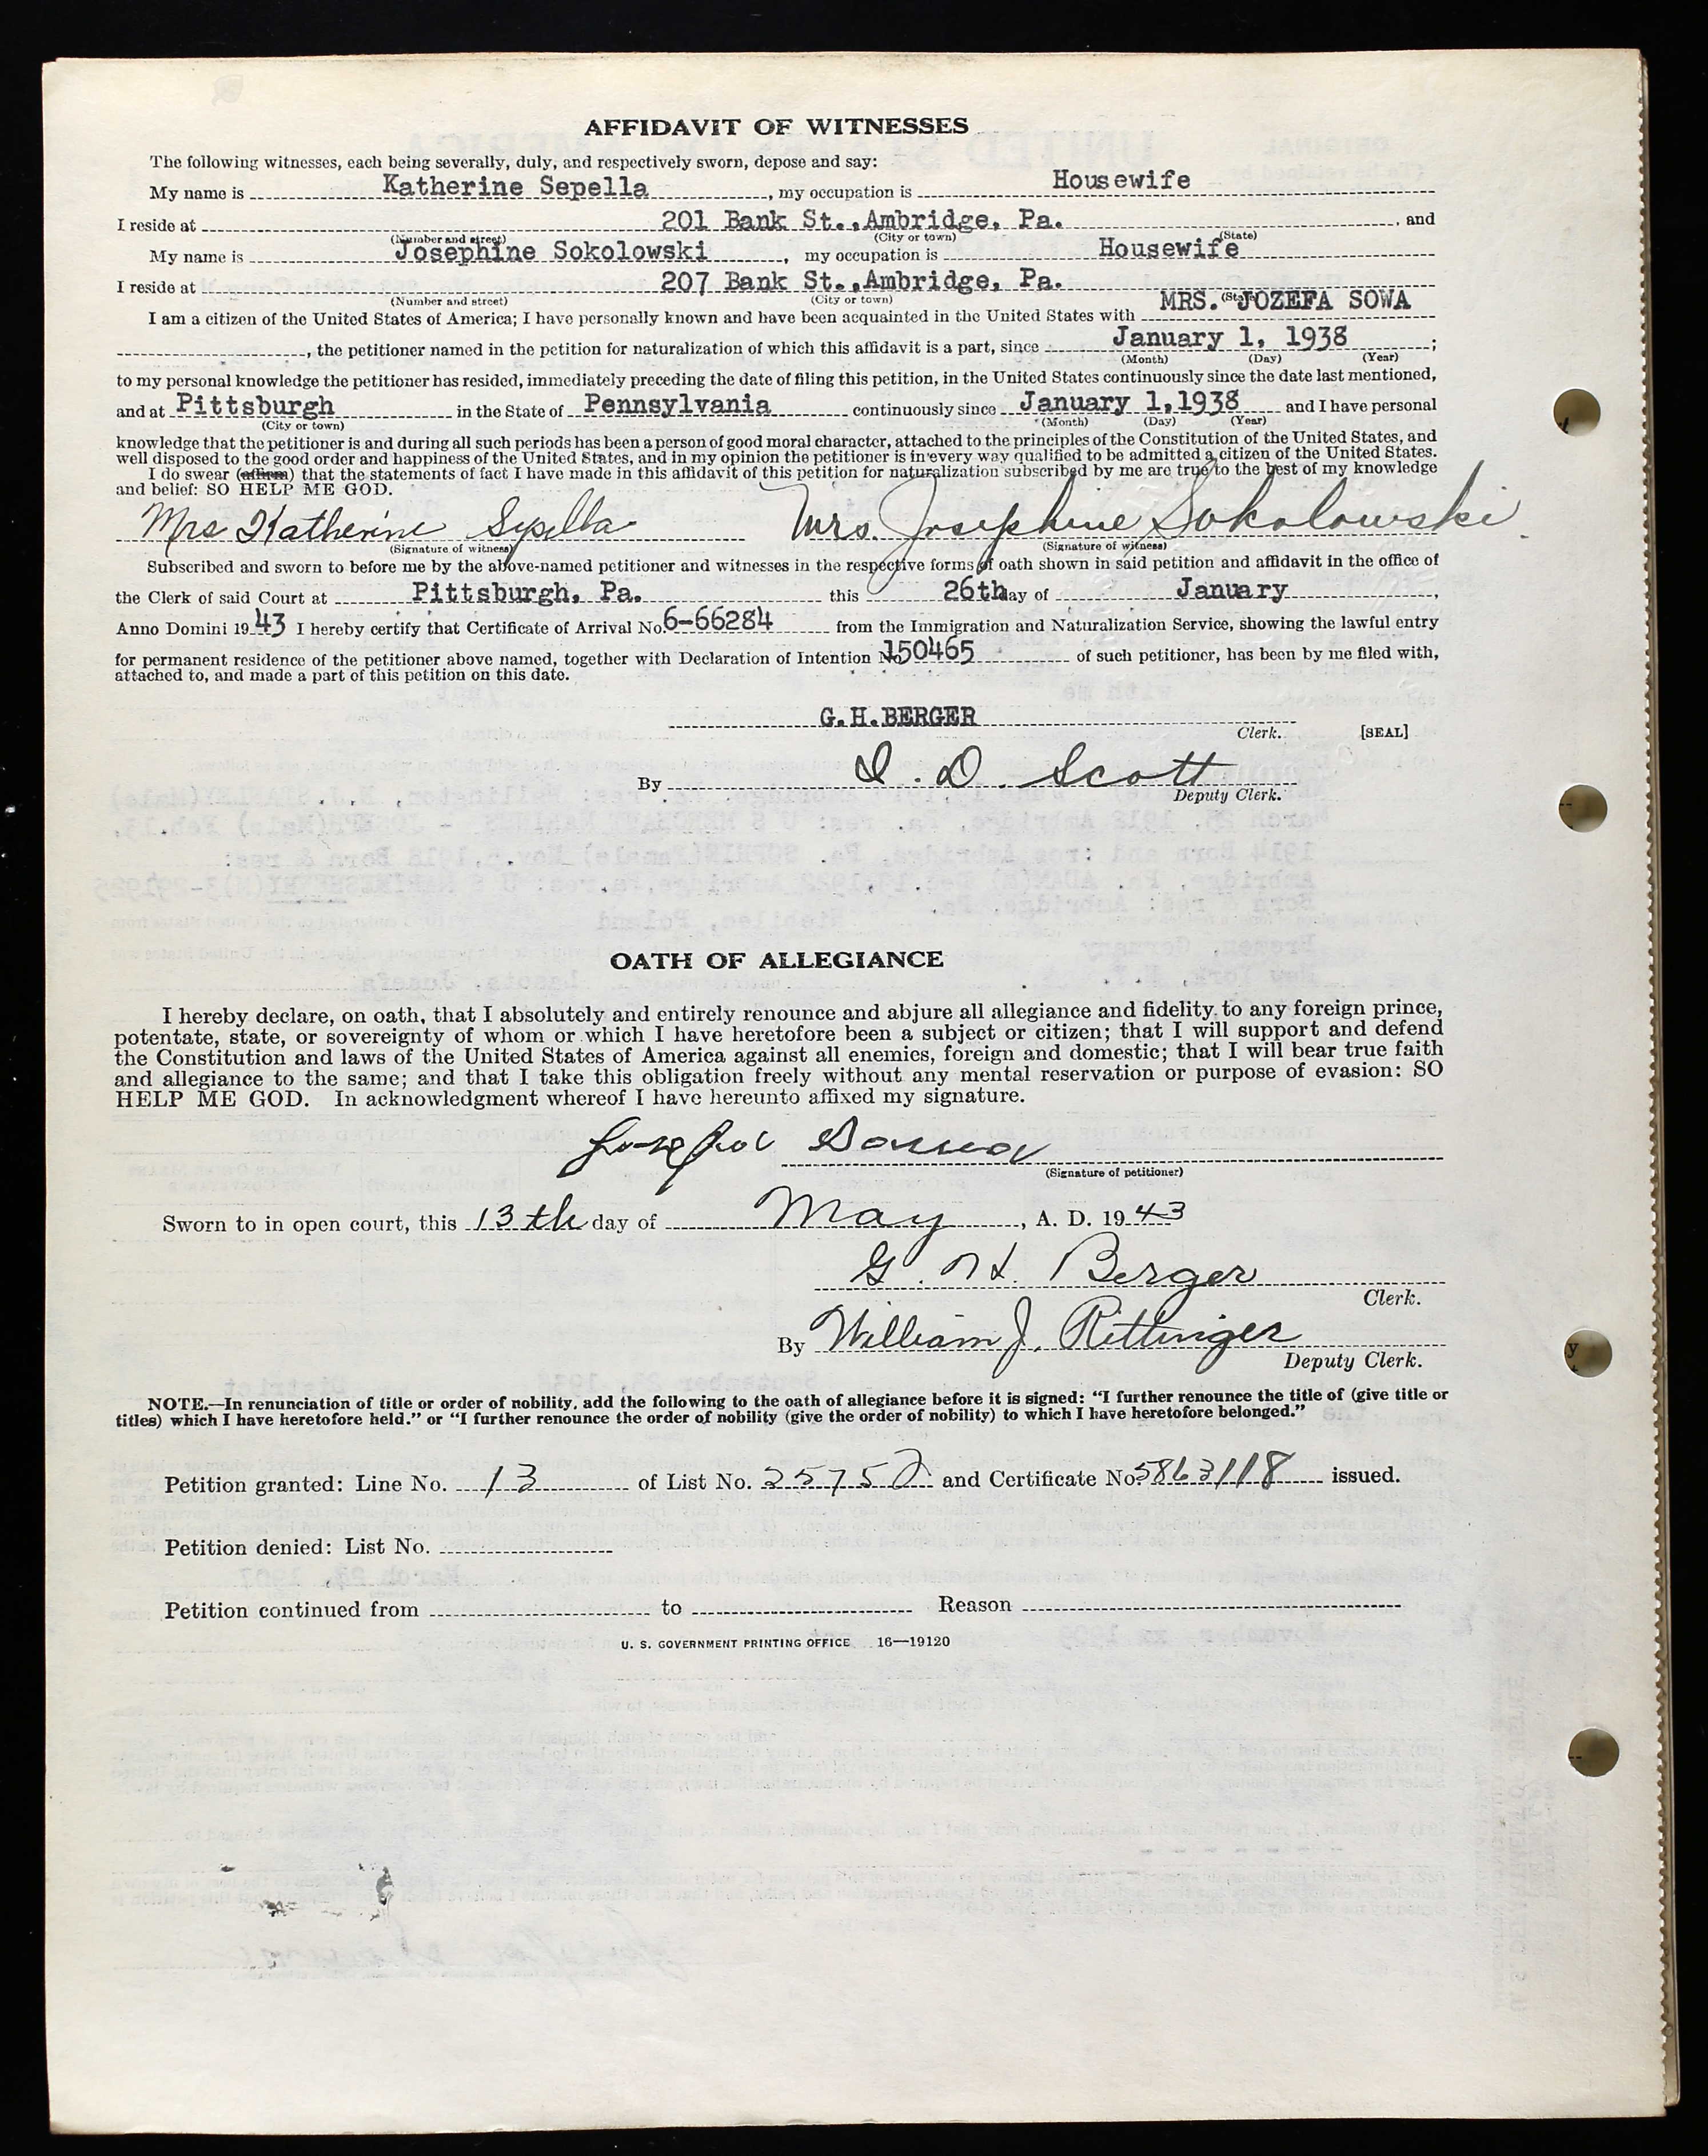 AFFIDAVIT OF WITNESSES
The following witnesses, each being severally, duly, and respectively sworn, depose and say:
My name is Katherine Sepella, my occupation is Housewife
I reside at 201 Bank St., Ambridge, Pa., and
(Number and street) (City or town) (State)
My name is Josephine Sokolowski, my occupation is Housewife
I reside at 207 Bank St., Ambridge, Pa.
(Number and street) (City or town) (State)
I am a citizen of the United States of America; I have personally known and have been acquainted in the United States with MRS. JOZEFA SOWA
, the petitioner named in the petition for naturalization of which this affidavit is a part, since January 1, 1938;
(Month) (Day) (Year)
to my personal knowledge the petitioner has resided, immediately preceding the date of filing this petition, in the United States continuously since the date last mentioned,
and at Pittsburgh in the State of Pennsylvania continuously since January 1, 1938 and I have personal
(City or town) (Month) (Day) (Year)
knowledge that the petitioner is and during all such periods has been a person of good moral character, attached to the principles of the Constitution of the United States, and
well disposed to the good order and happiness of the United States, and in my opinion the petitioner is in every way qualified to be admitted a citizen of the United States.
I do swear (affirm) that the statements of fact I have made in this affidavit of this petition for naturalization subscribed by me are true to the best of my knowledge
and belief: SO HELP ME GOD.
Mrs Katherine Sepella Mrs. Josephine Sokolowski
(Signature of witness) (Signature of witness)
Subscribed and sworn to before me by the above-named petitioner and witnesses in the respective forms of oath shown in said petition and affidavit in the office of
the Clerk of said Court at Pittsburgh, Pa. this 26th day of January,
Anno Domini 1943 I hereby certify that Certificate of Arrival No. 6-66284 from the Immigration and Naturalization Service, showing the lawful entry
for permanent residence of the petitioner above named, together with Declaration of Intention No 150465 of such petitioner, has been by me filed with,
attached to, and made a part of this petition on this date.
G.H.BERGER
Clerk. [SEAL]
By I. D. Scott
Deputy Clerk.
OATH OF ALLEGIANCE
I hereby declare, on oath, that I absolutely and entirely renounce and abjure all allegiance and fidelity to any foreign prince,
potentate, state, or sovereignty of whom or which I have heretofore been a subject or citizen; that I will support and defend
the Constitution and laws of the United States of America against all enemies, foreign and domestic; that I will bear true faith
and allegiance to the same; and that I take this obligation freely without any mental reservation or purpose of evasion: SO
HELP ME GOD. In acknowledgment whereof I have hereunto affixed my signature.
Jozefa Sowa
(Signature of petitioner)
Sworn to in open court, this 13th day of May, A. D. 1943
G. H. Berger
Clerk.
By William J. Rittinger
Deputy Clerk.
NOTE.—In renunciation of title or order of nobility, add the following to the oath of allegiance before it is signed: "I further renounce the title of (give title or
titles) which I have heretofore held." or "I further renounce the order of nobility (give the order of nobility) to which I have heretofore belonged."
Petition granted: Line No. 13 of List No. 2575 and Certificate No. 5863118 issued.
Petition denied: List No.
Petition continued from to Reason
U. S. GOVERNMENT PRINTING OFFICE 16—19120